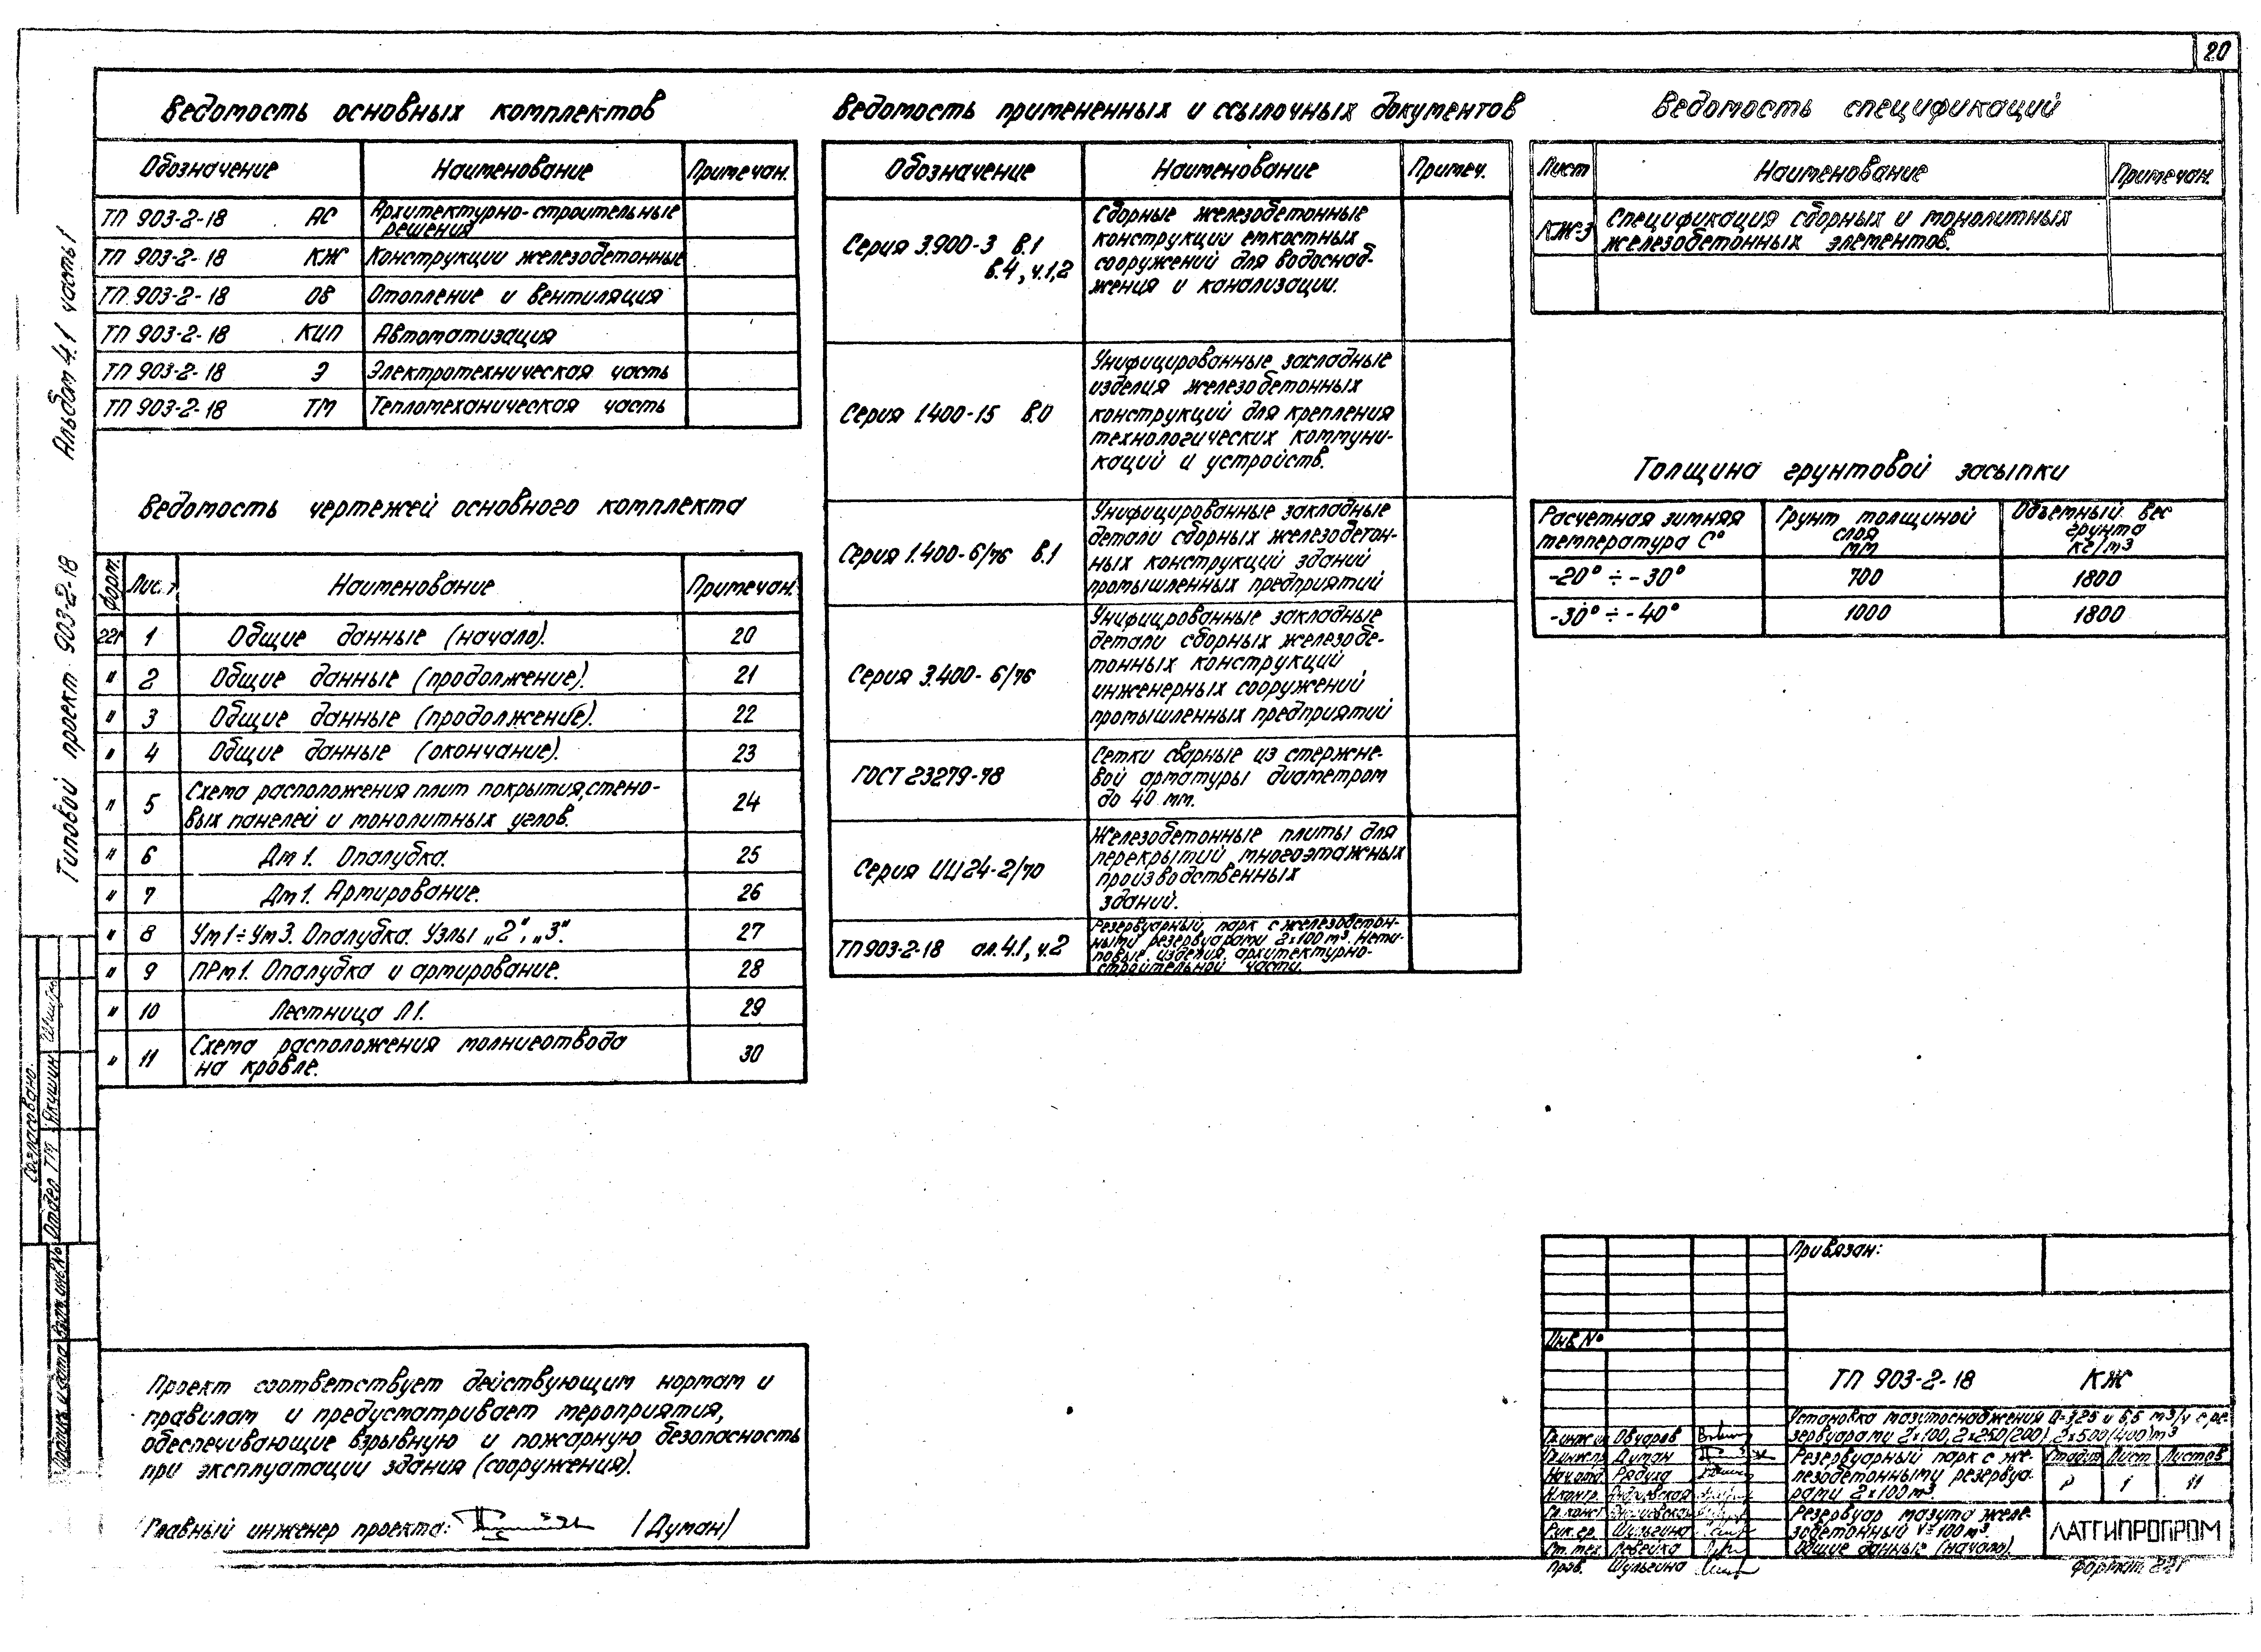 20
Ведомость основных комплектов
Обозначение Наименование Примечан.
ТП 903-2-18 АС Архитектурно-строительные
решения
ТП 903-2-18 КЖ Конструкции железобетонные
ТП 903-2-18 ОВ Отопление и вентиляция
ТП 903-2-18 КИП Автоматизация
ТП 903-2-18 Э Электротехническая часть
ТП 903-2-18 ТМ Тепломеханическая часть
Ведомость чертежей основного комплекта
Форм. Лист Наименование Примечан.
22г 1 Общие данные (начало). 20
" 2 Общие данные (продолжение). 21
" 3 Общие данные (продолжение). 22
" 4 Общие данные (окончание). 23
" 5 Схема расположения плит покрытия, стено-
вых панелей и монолитных углов. 24
" 6 Дм1. Опалубка. 25
" 7 Дм1. Армирование. 26
" 8 Ум1÷Ум3. Опалубка. Узлы „2", „3". 27
" 9 ПРм1. Опалубка и армирование. 28
" 10 Лестница Л1. 29
" 11 Схема расположения молниеотвода
на кровле. 30
Проект соответствует действующим нормам и
правилам и предусматривает мероприятия,
обеспечивающие взрывную и пожарную безопасность
при эксплуатации здания (сооружения).
Главный инженер проекта: /Думан/
Ведомость примененных и ссылочных документов
Обозначение Наименование Примеч.
Серия 3.900-3 В.1
В.4, ч.1,2
Сборные железобетонные
конструкции емкостных
сооружений для водоснаб-
жения и канализации.
Серия 1.400-15 В.0
Унифицированные закладные
изделия железобетонных
конструкций для крепления
технологических коммуни-
каций и устройств.
Серия 1.400-6/76 В.1
Унифицированные закладные
детали сборных железобетон-
ных конструкций зданий
промышленных предприятий
Серия 3.400-6/76
Унифицированные закладные
детали сборных железобе-
тонных конструкций
инженерных сооружений
промышленных предприятий
ГОСТ 23279-78
Сетки сварные из стержне-
вой арматуры диаметром
до 40 мм.
Серия ИИ 24-2/70
Железобетонные плиты для
перекрытий многоэтажных
производственных
зданий.
ТП 903-2-18 ал. 4.1, ч.2
Резервуарный парк с железобетон-
ными резервуарами 2х100 м³. Нети-
повые изделия архитектурно-
строительной части.
Ведомость спецификаций
Лист Наименование Примечан.
КЖ-3 Спецификация сборных и монолитных
железобетонных элементов.
Толщина грунтовой засыпки
Расчетная зимняя
температура С°
Грунт толщиной
слоя
мм
Объемный вес
грунта
кг/м3
-20° ÷ -30° 700 1800
-30° ÷ -40° 1000 1800
Привязан:
Инв.№
ТП 903-2-18 КЖ
Установка мазутоснабжения Q=3,25 и 6,5 м3/ч с ре-
зервуарами 2х100, 2х250(200), 2х500(400) м3
Резервуарный парк с же-
лезобетонными резервуа-
рами 2х100 м³.
Стадия Лист Листов
Р 1 11
Резервуар мазута желе-
зобетонный V=100 м³.
Общие данные (начало).
ЛАТГИПРОПРОМ
Гл.инж.ин Овчаров
Гл.инж.пр Думан
Нач.отд. Рядуха
Н.контр.
Гл.конст.
Рук.гр. Шульгина
Ст.тех. Левейка
Пров. Шульгина
Формат 22г
Типовой проект 903-2-18 Альбом 4.1 часть 1
Согласовано:
Отдел ТМ Якишин
Подпись и дата Взам.инв.№